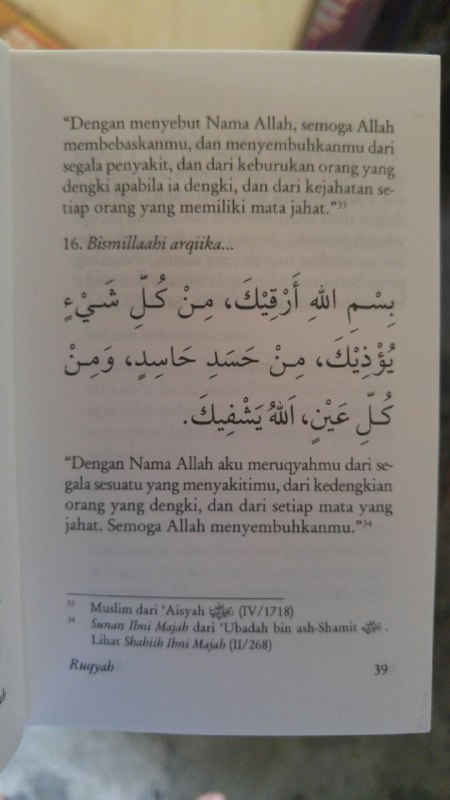 “Dengan menyebut Nama Allah, semoga Allah
membebaskanmu, dan menyembuhkanmu dari
segala penyakit, dan dari keburukan orang yang
dengki apabila ia dengki, dan dari kejahatan se-
tiap orang yang memiliki mata jahat.”³³
16. Bismillaahi arqiika...
بِسْمِ اللهِ أَرْقِيْكَ، مِنْ كُلِّ شَيْءٍ
يُؤْذِيْكَ، مِنْ حَسَدِ حَاسِدٍ، وَمِنْ
كُلِّ عَيْنٍ، اَللهُ يَشْفِيكَ.
“Dengan Nama Allah aku meruqyahmu dari se-
gala sesuatu yang menyakitimu, dari kedengkian
orang yang dengki, dan dari setiap mata yang
jahat. Semoga Allah menyembuhkanmu.”³⁴
³³ Muslim dari 'Aisyah (IV/1718)
³⁴ Sunan Ibni Majah dari 'Ubadah bin ash-Shamit .
Lihat Shahiih Ibni Majah (II/268)
Ruqyah 39